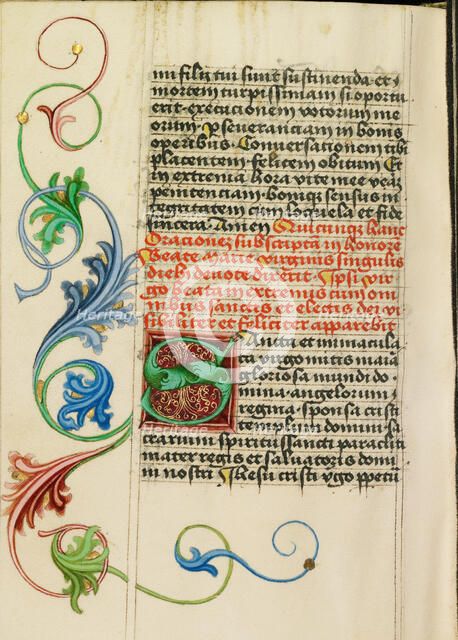 mi filij tui sunt sustinenda et si
mortem turpissimam si oportu
erit executionem votorum me
orum Perseveranciam in bonis
operibus Conversationem tibi
placentem felicem obitum Et
in extrema hora vite mee veram
penitenciam bonique sensus in
tegritatem cum loquela et fide
sincera Amen Quicunque hanc
Orationem subscriptam in honore
Beate marie virginis singulis
diebus devote dixerit Ipsi vir
go beata in extremis cum om
nibus sanctis et electis dei vi
sibiliter et feliciter apparebit
Sancta et immacula
ta virgo mitis maria
gloriosa mundi do
mina angelorum
regina sponsa cristi
templum domini sa
crarium spiritussancti paracliti
mater regis et salvatoris domi
ni nostri Jhesu cristi virgo
heritage